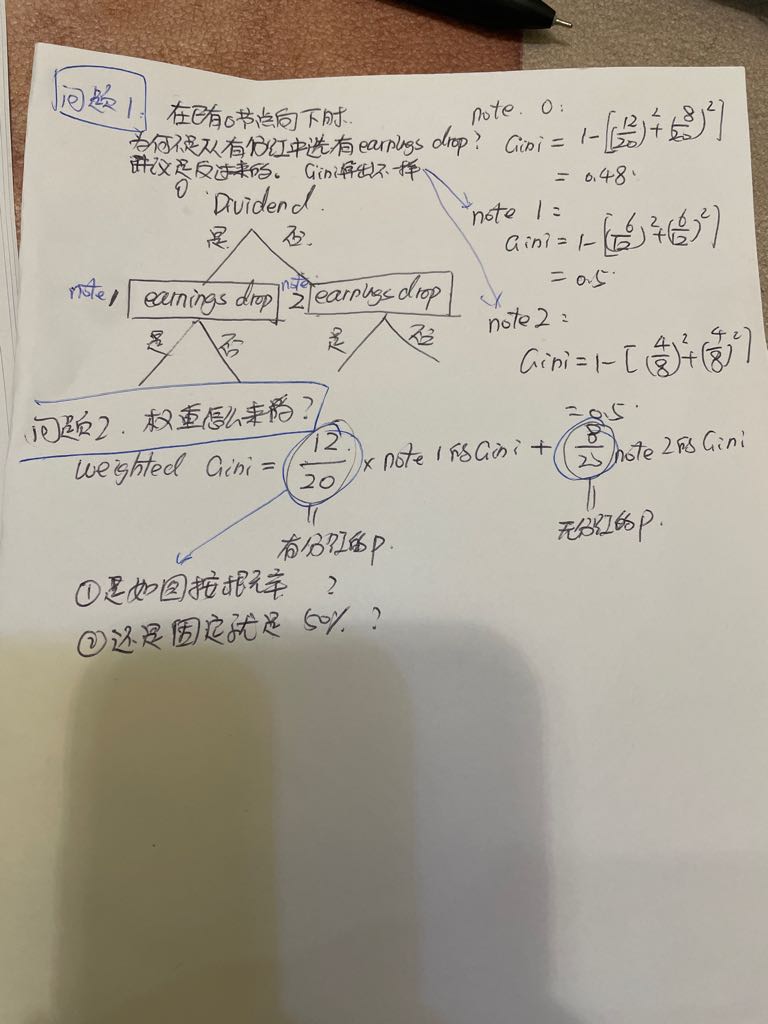 问题1.
在已有0节点向下时.
为何不是从有分红中选有earnings drop?
讲议是反过来的。 Gini算出不一样
0 Dividend.
是 否.
note 1 earnings drop note 2 earnings drop
是 否 是 否
note. 0:
Gini = 1-[(12/20)²+(8/20)²]
= 0.48.
note 1 =
Gini = 1-[(6/12)²+(6/12)²]
= 0.5.
note 2 =
Gini = 1-[(4/8)²+(4/8)²]
= 0.5.
问题2. 权重怎么来的?
weighted Gini = 12/20 × note 1的Gini + 8/20 note 2的Gini
有分红的P.
无分红的P.
①是如图按概率 ?
②还是固定就是 50% ?